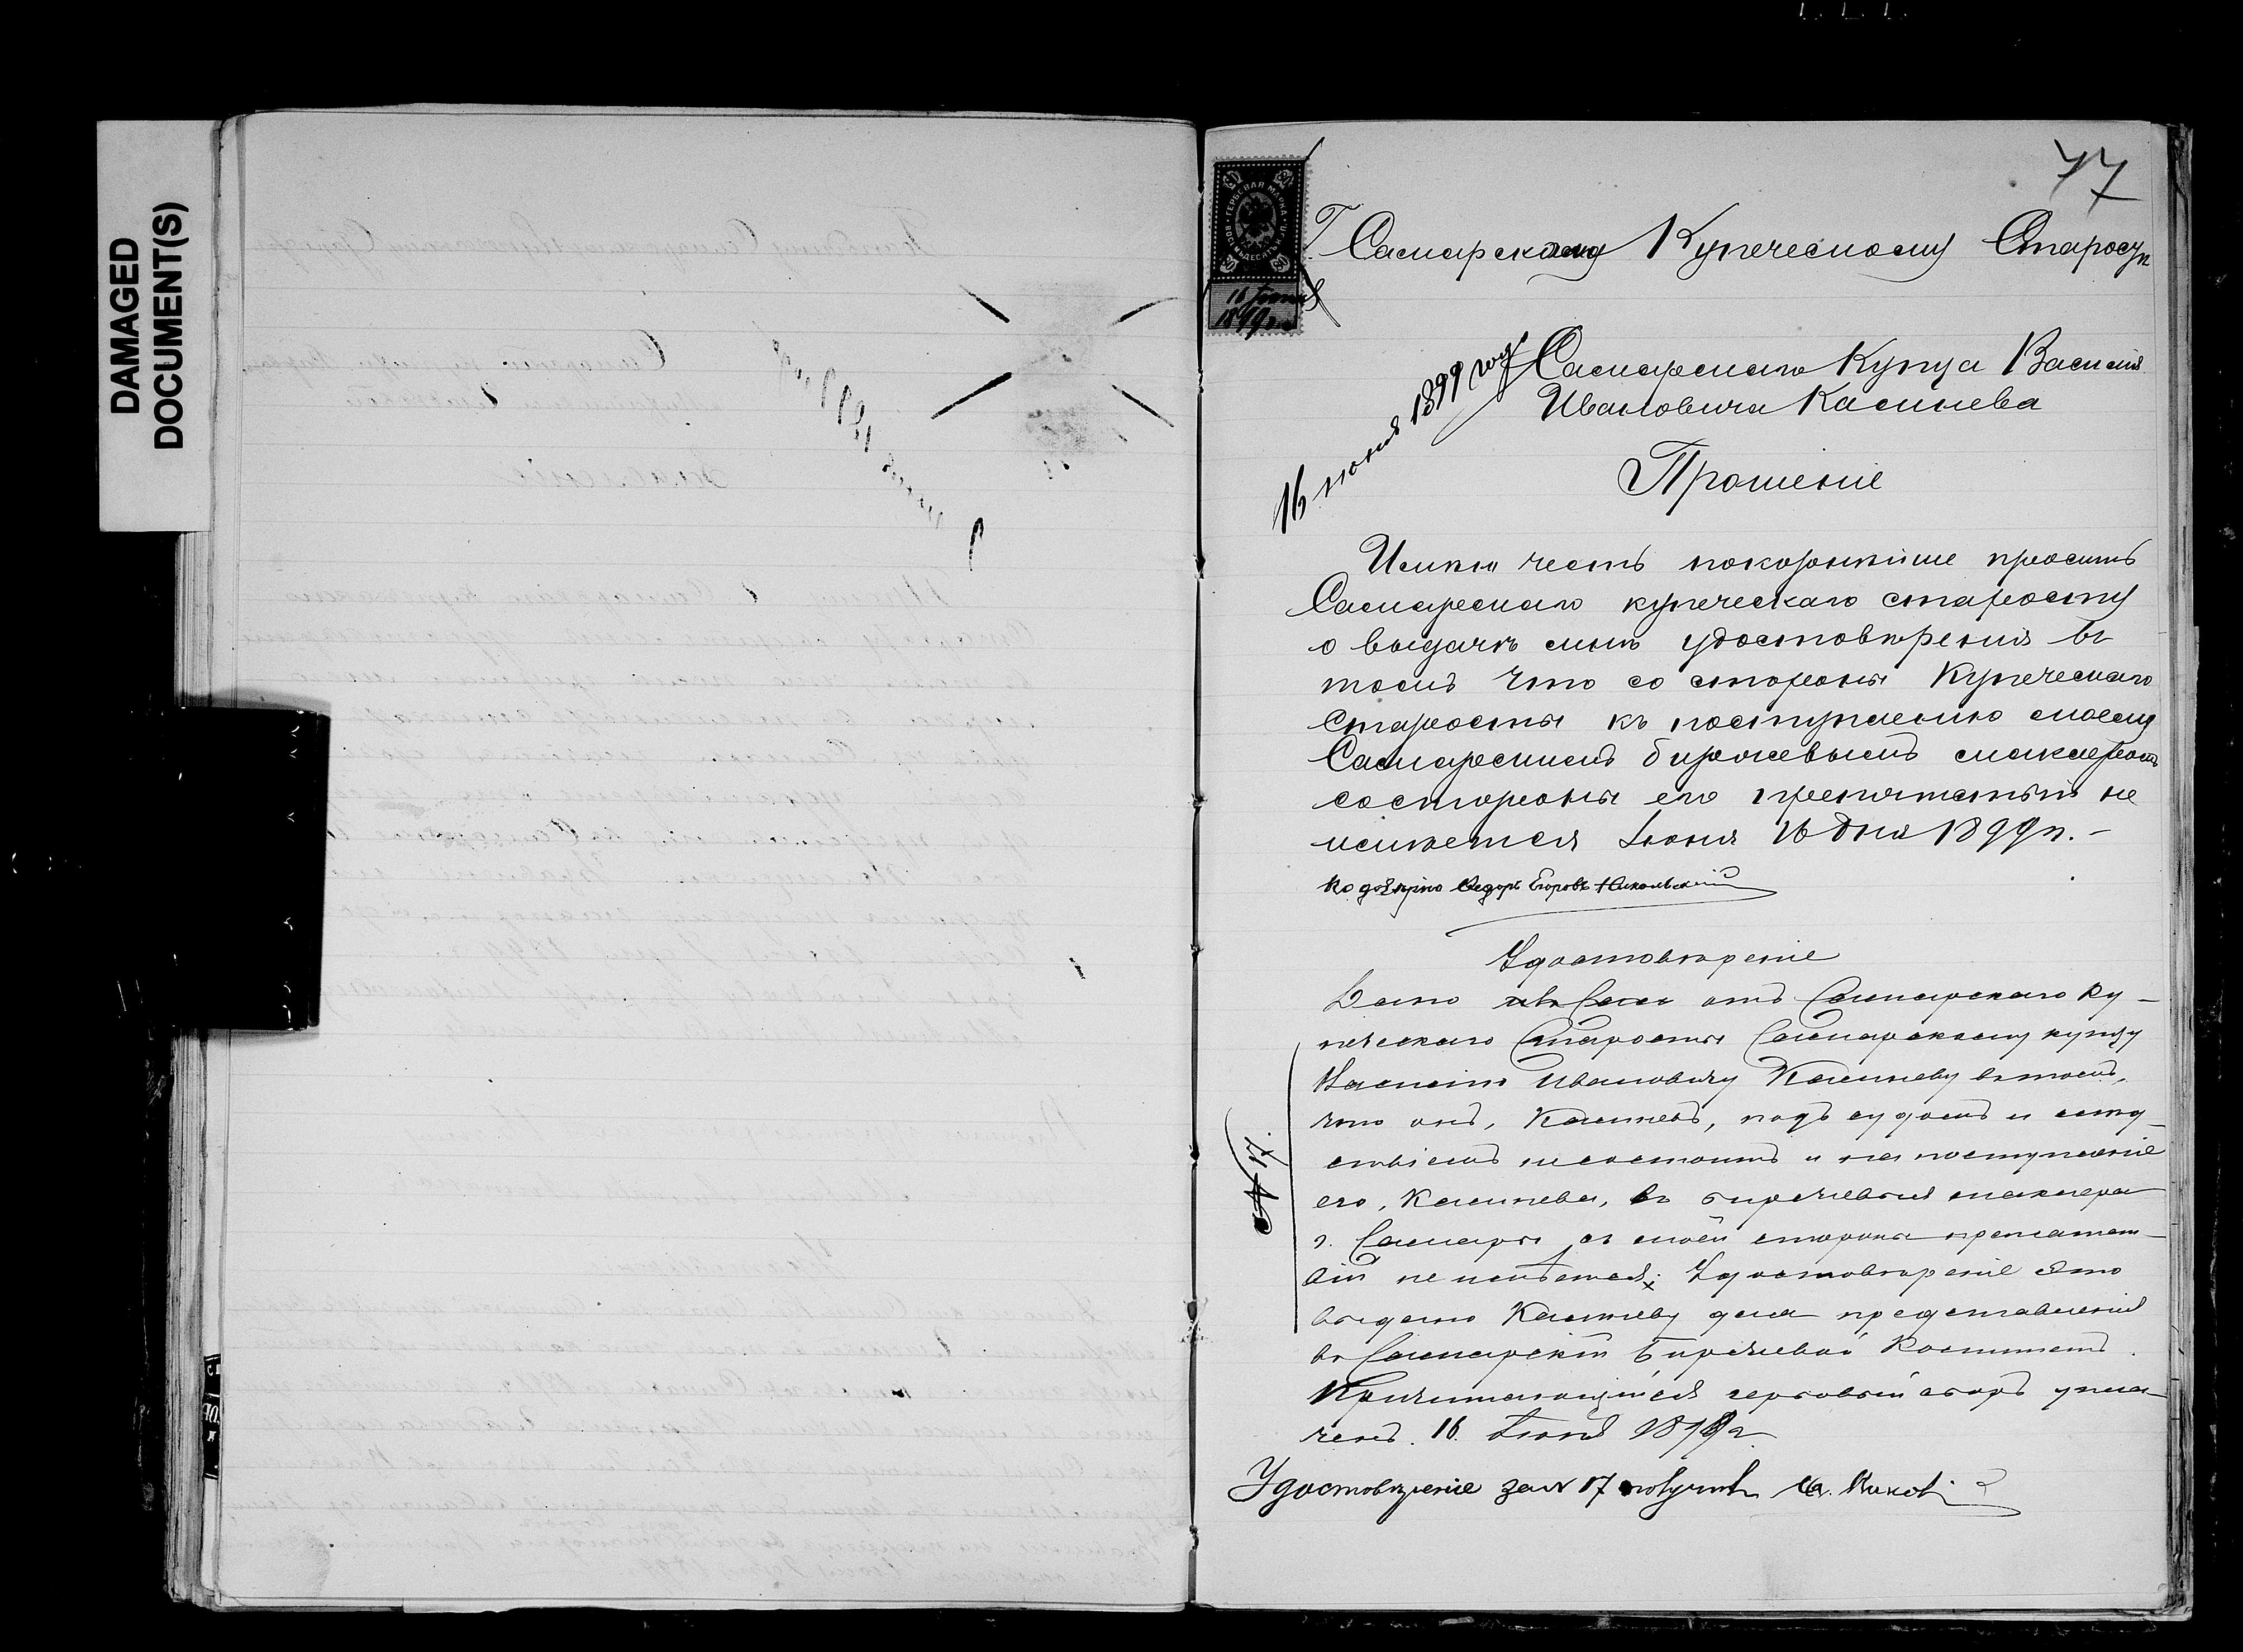 DAMAGED
DOCUMENT(S)
77
ГЕРБСКАЯ МАРКА
16 Іюня
1899 г.
Г Самарскому Купеческому Старосѣ
16 июня 1899 году
Самарскаго Купца Василія
Ивановича Касинева
Прошеніе
Имѣю честь покорнѣйше просить
Самарскаго купеческаго старосту
о выдачѣ мнѣ удостовѣренія въ
томъ что со стороны Купеческаго
Старосты къ поступленію моему
Самарскимъ биржевымъ маклеромъ
состороны его препятствій не
имѣется Іюня 16 дня 1899 г. –
По довѣрію Ѳедоръ Егоровъ Никольскій
Удостовѣреніе
Дано отъ Самарскаго Ку-
печескаго Старосты Самарскому купцу
Василію Ивановичу Касиневу въ томъ,
что онъ, Касиневъ, подъ судомъ и слѣд-
ствіемъ не состоитъ и на поступленіе
его, Касинева, въ биржевыя маклера
г. Самары съ моей стороны препятст-
вій не имѣется. Удостовѣреніе это
выдано Касиневу для представленія
въ Самарскій Биржевой Комитетъ.
Причитающійся гербовый сборъ упла-
ченъ. 16 Іюня 1899 г.
№ 17.
Удостовѣреніе за № 17 получилъ